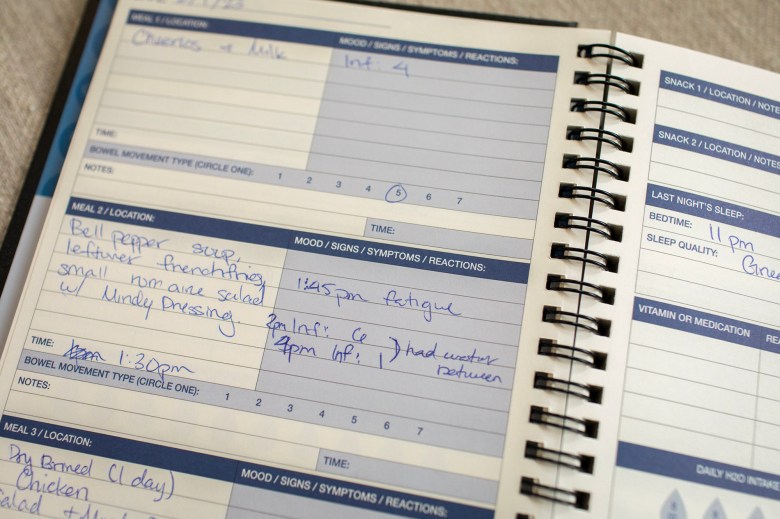 MEAL 1 / LOCATION:
Cheerios + Milk
MOOD / SIGNS / SYMPTOMS / REACTIONS:
Inf: 4
TIME:
BOWEL MOVEMENT TYPE (CIRCLE ONE): 1 2 3 4 5 6 7
NOTES:
MEAL 2 / LOCATION:
TIME:
Bell pepper soup,
leftover french fries,
small romaine salad
w/ Mindy Dressing.
MOOD / SIGNS / SYMPTOMS / REACTIONS:
1:45pm fatigue
2pm Inf: 6
4pm Inf: 1
) had water
between
TIME: 1:30pm
BOWEL MOVEMENT TYPE (CIRCLE ONE): 1 2 3 4 5 6 7
NOTES:
MEAL 3 / LOCATION:
TIME:
Dry Brined (1 day)
Chicken
Salad +
MOOD / SIGNS / SYMPTOMS / REACTIONS:
SNACK 1 / LOCATION / NOTE
SNACK 2 / LOCATION / NOTE
LAST NIGHT'S SLEEP:
BEDTIME: 11pm
SLEEP QUALITY:
VITAMIN OR MEDICATION
REA
DAILY H2O INTAKE